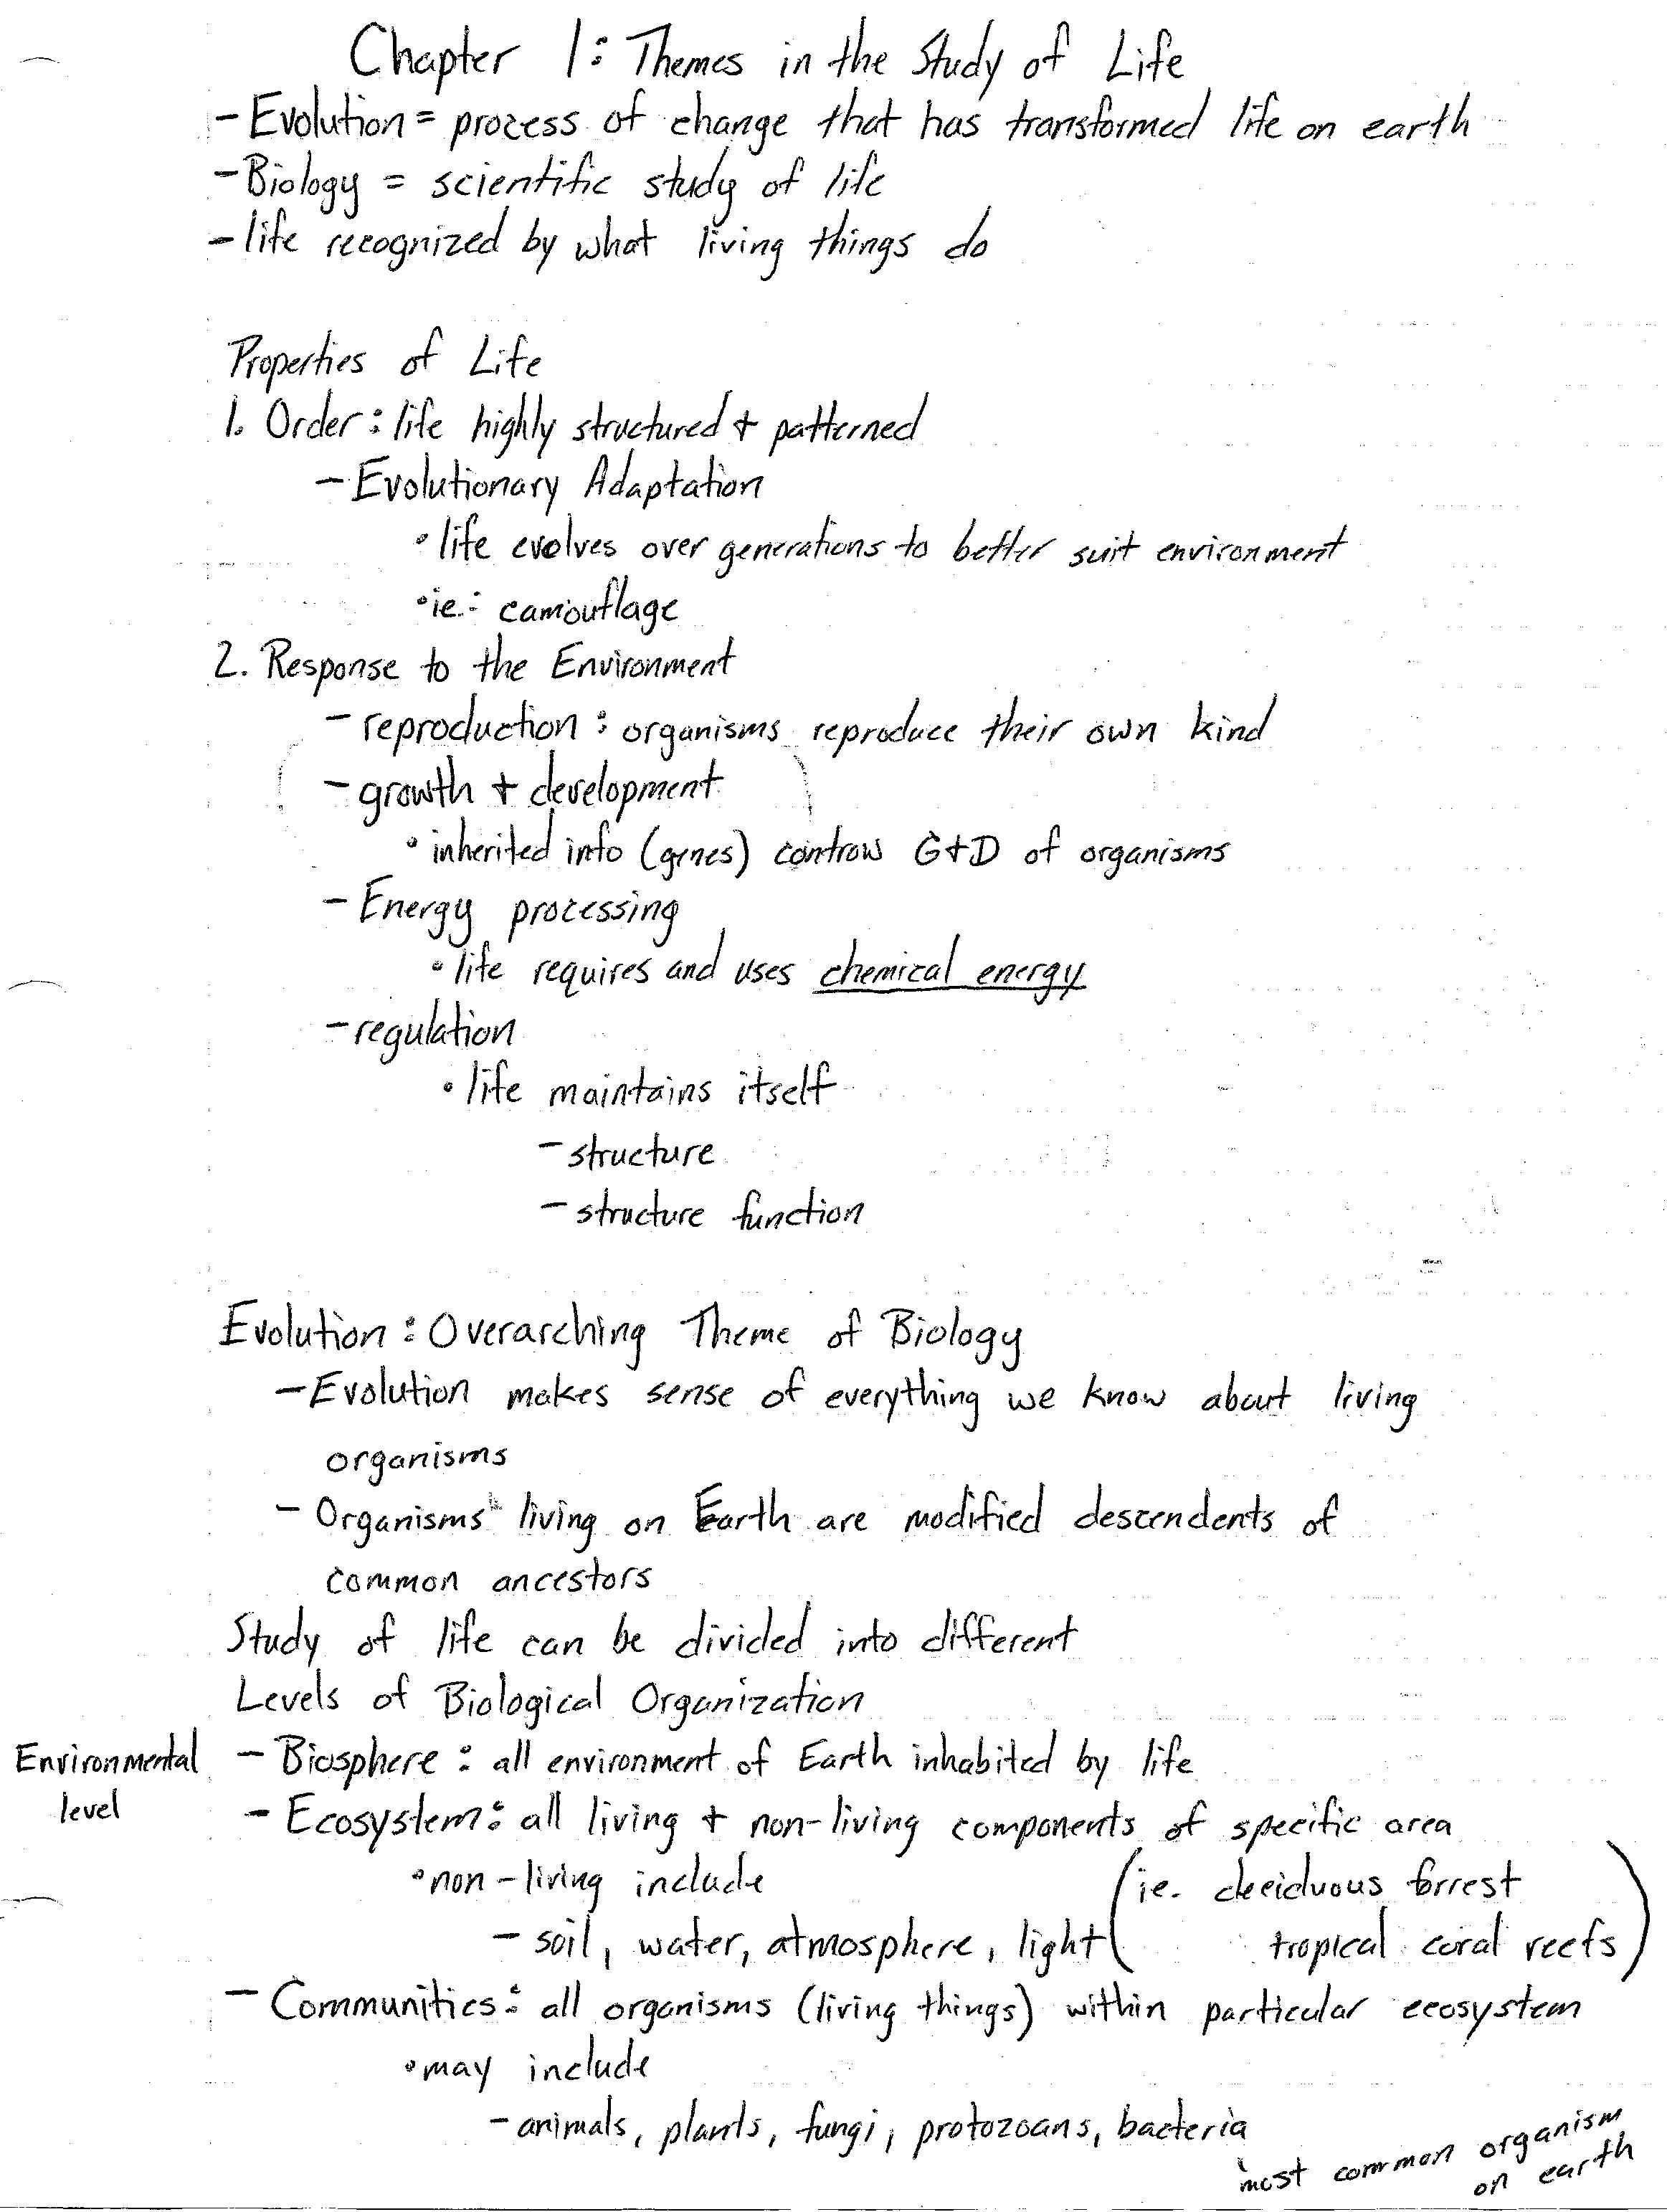 Chapter 1: Themes in the Study of Life
- Evolution = process of change that has transformed life on earth
- Biology = scientific study of life
- life recognized by what living things do
Properties of Life
1. Order: life highly structured + patterned
- Evolutionary Adaptation
• life evolves over generations to better suit environment
• ie.: camouflage
2. Response to the Environment
- reproduction: organisms reproduce their own kind
- growth + development
• inherited info (genes) controw G+D of organisms
- Energy processing
• life requires and uses chemical energy
- regulation
• life maintains itself
- structure
- structure function
Evolution: Overarching Theme of Biology
- Evolution makes sense of everything we know about living
organisms
- Organisms living on Earth are modified descendents of
common ancestors
Study of life can be divided into different
Levels of Biological Organization
Environmental
level
- Biosphere: all environment of Earth inhabited by life
- Ecosystem: all living + non-living components of specific area
• non-living include
(ie. deciduous forrest
- soil, water, atmosphere, light
tropical coral reefs)
- Communities: all organisms (living things) within particular ecosystem
• may include
- animals, plants, fungi, protozoans, bacteria
most common organism
on earth